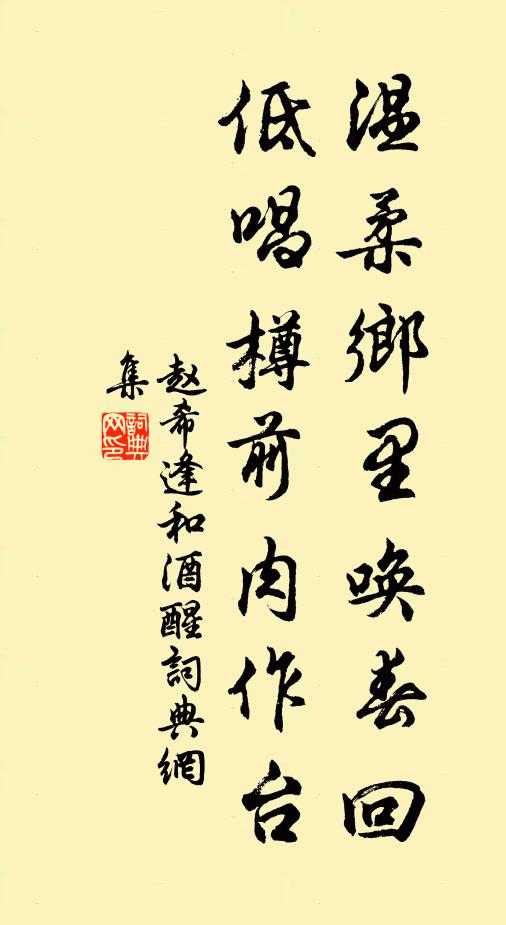 温柔鄉里喚春回
低唱樽前肉作台
赵希逢和酒醒詞典網
集
詞典
网印